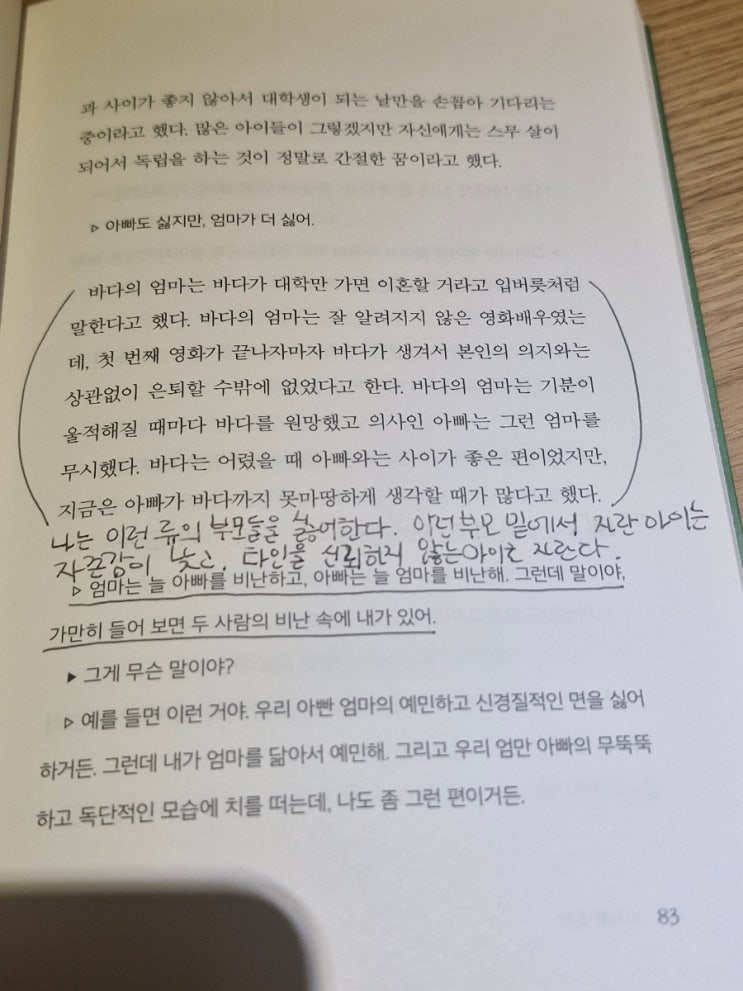 과 사이가 좋지 않아서 대학생이 되는 날만을 손꼽아 기다리는
중이라고 했다. 많은 아이들이 그렇겠지만 자신에게는 스무 살이
되어서 독립을 하는 것이 정말로 간절한 꿈이라고 했다.
▷ 아빠도 싫지만, 엄마가 더 싫어.
바다의 엄마는 바다가 대학만 가면 이혼할 거라고 입버릇처럼
말한다고 했다. 바다의 엄마는 잘 알려지지 않은 영화배우였는
데, 첫 번째 영화가 끝나자마자 바다가 생겨서 본인의 의지와는
상관없이 은퇴할 수밖에 없었다고 한다. 바다의 엄마는 기분이
울적해질 때마다 바다를 원망했고 의사인 아빠는 그런 엄마를
무시했다. 바다는 어렸을 때 아빠와는 사이가 좋은 편이었지만,
지금은 아빠가 바다까지 못마땅하게 생각할 때가 많다고 했다.
나는 이런 류의 부모들을 싫어한다. 이런 부모 밑에서 자란 아이는
자존감이 낮고, 타인을 신뢰하지 않는 아이로 자란다.
▷ 엄마는 늘 아빠를 비난하고, 아빠는 늘 엄마를 비난해. 그런데 말이야,
가만히 들어 보면 두 사람의 비난 속에 내가 있어.
▶ 그게 무슨 말이야?
▷ 예를 들면 이런 거야. 우리 아빤 엄마의 예민하고 신경질적인 면을 싫어
하거든. 그런데 내가 엄마를 닮아서 예민해. 그리고 우리 엄만 아빠의 무뚝뚝
하고 독단적인 모습에 치를 떠는데, 나도 좀 그런 편이거든.
83